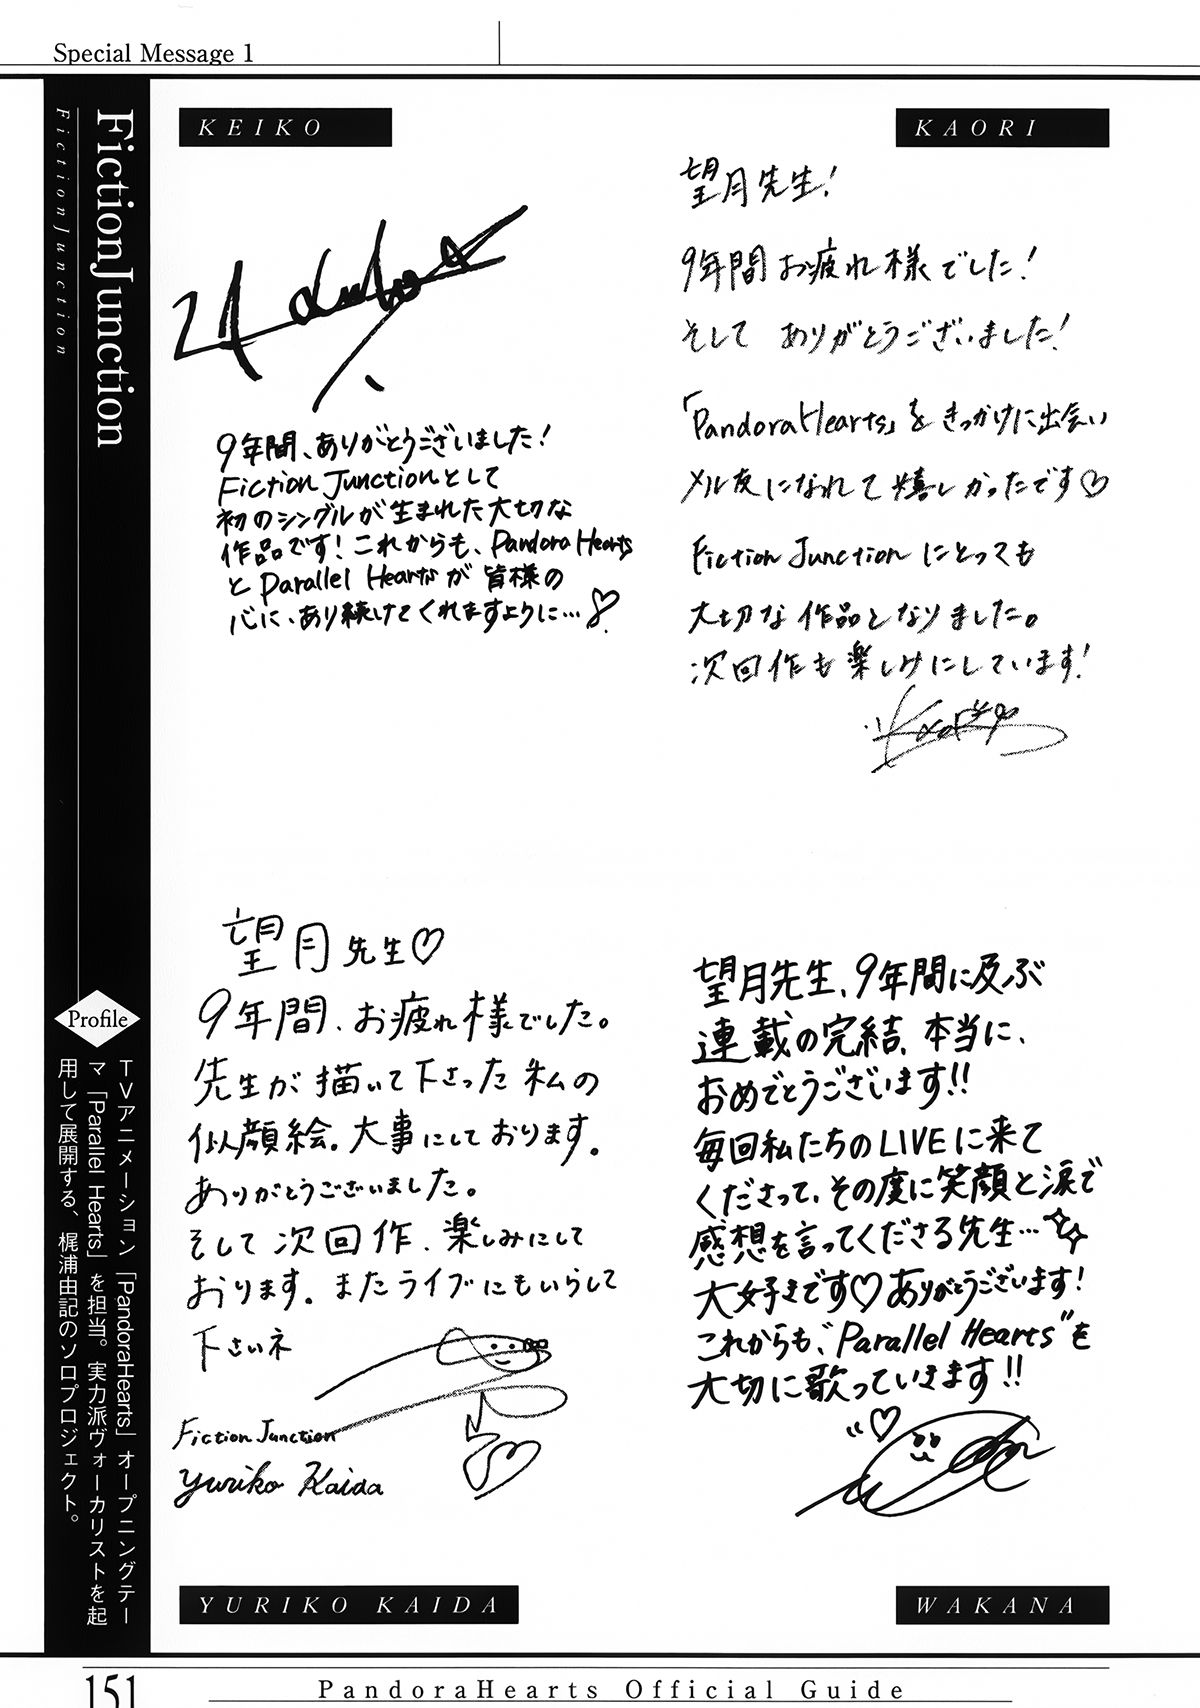 Special Message 1
FictionJunction
FictionJunction
KEIKO
9年間、ありがとうございました!
Fiction Junctionとして
初のシングルが生まれた大切な
作品です!これからも、Pandora Hearts
とParallel Heartsが皆様の
心に、あり続けてくれますように…
KAORI
望月先生!
9年間お疲れ様でした!
そして ありがとうございました!
「PandoraHearts」をきっかけに出会い
メル友になれて嬉しかったです♡
Fiction Junctionにとっても
大切な作品となりました。
次回作も楽しみにしています!
望月先生♡
9年間、お疲れ様でした。
先生が描いて下さった私の
似顔絵。大事にしております。
ありがとうございました。
そして次回作、楽しみにして
おります。またライブにもいらして
下さいネ
Fiction Junction
Yuriko Kaida
YURIKO KAIDA
望月先生、9年間に及ぶ
連載の完結、本当に、
おめでとうございます!!
毎回私たちのLIVEに来て
くださって、その度に笑顔と涙で
感想を言ってくださる先生…
大好きです♡ありがとうございます!
これからも、"Parallel Hearts"を
大切に歌っていきます!!
WAKANA
Profile
TVアニメーション「PandoraHearts」オープニングテー
マ「Parallel Hearts」を担当。実力派ヴォーカリストを起
用して展開する、梶浦由記のソロプロジェクト。
151
PandoraHearts Official Guide